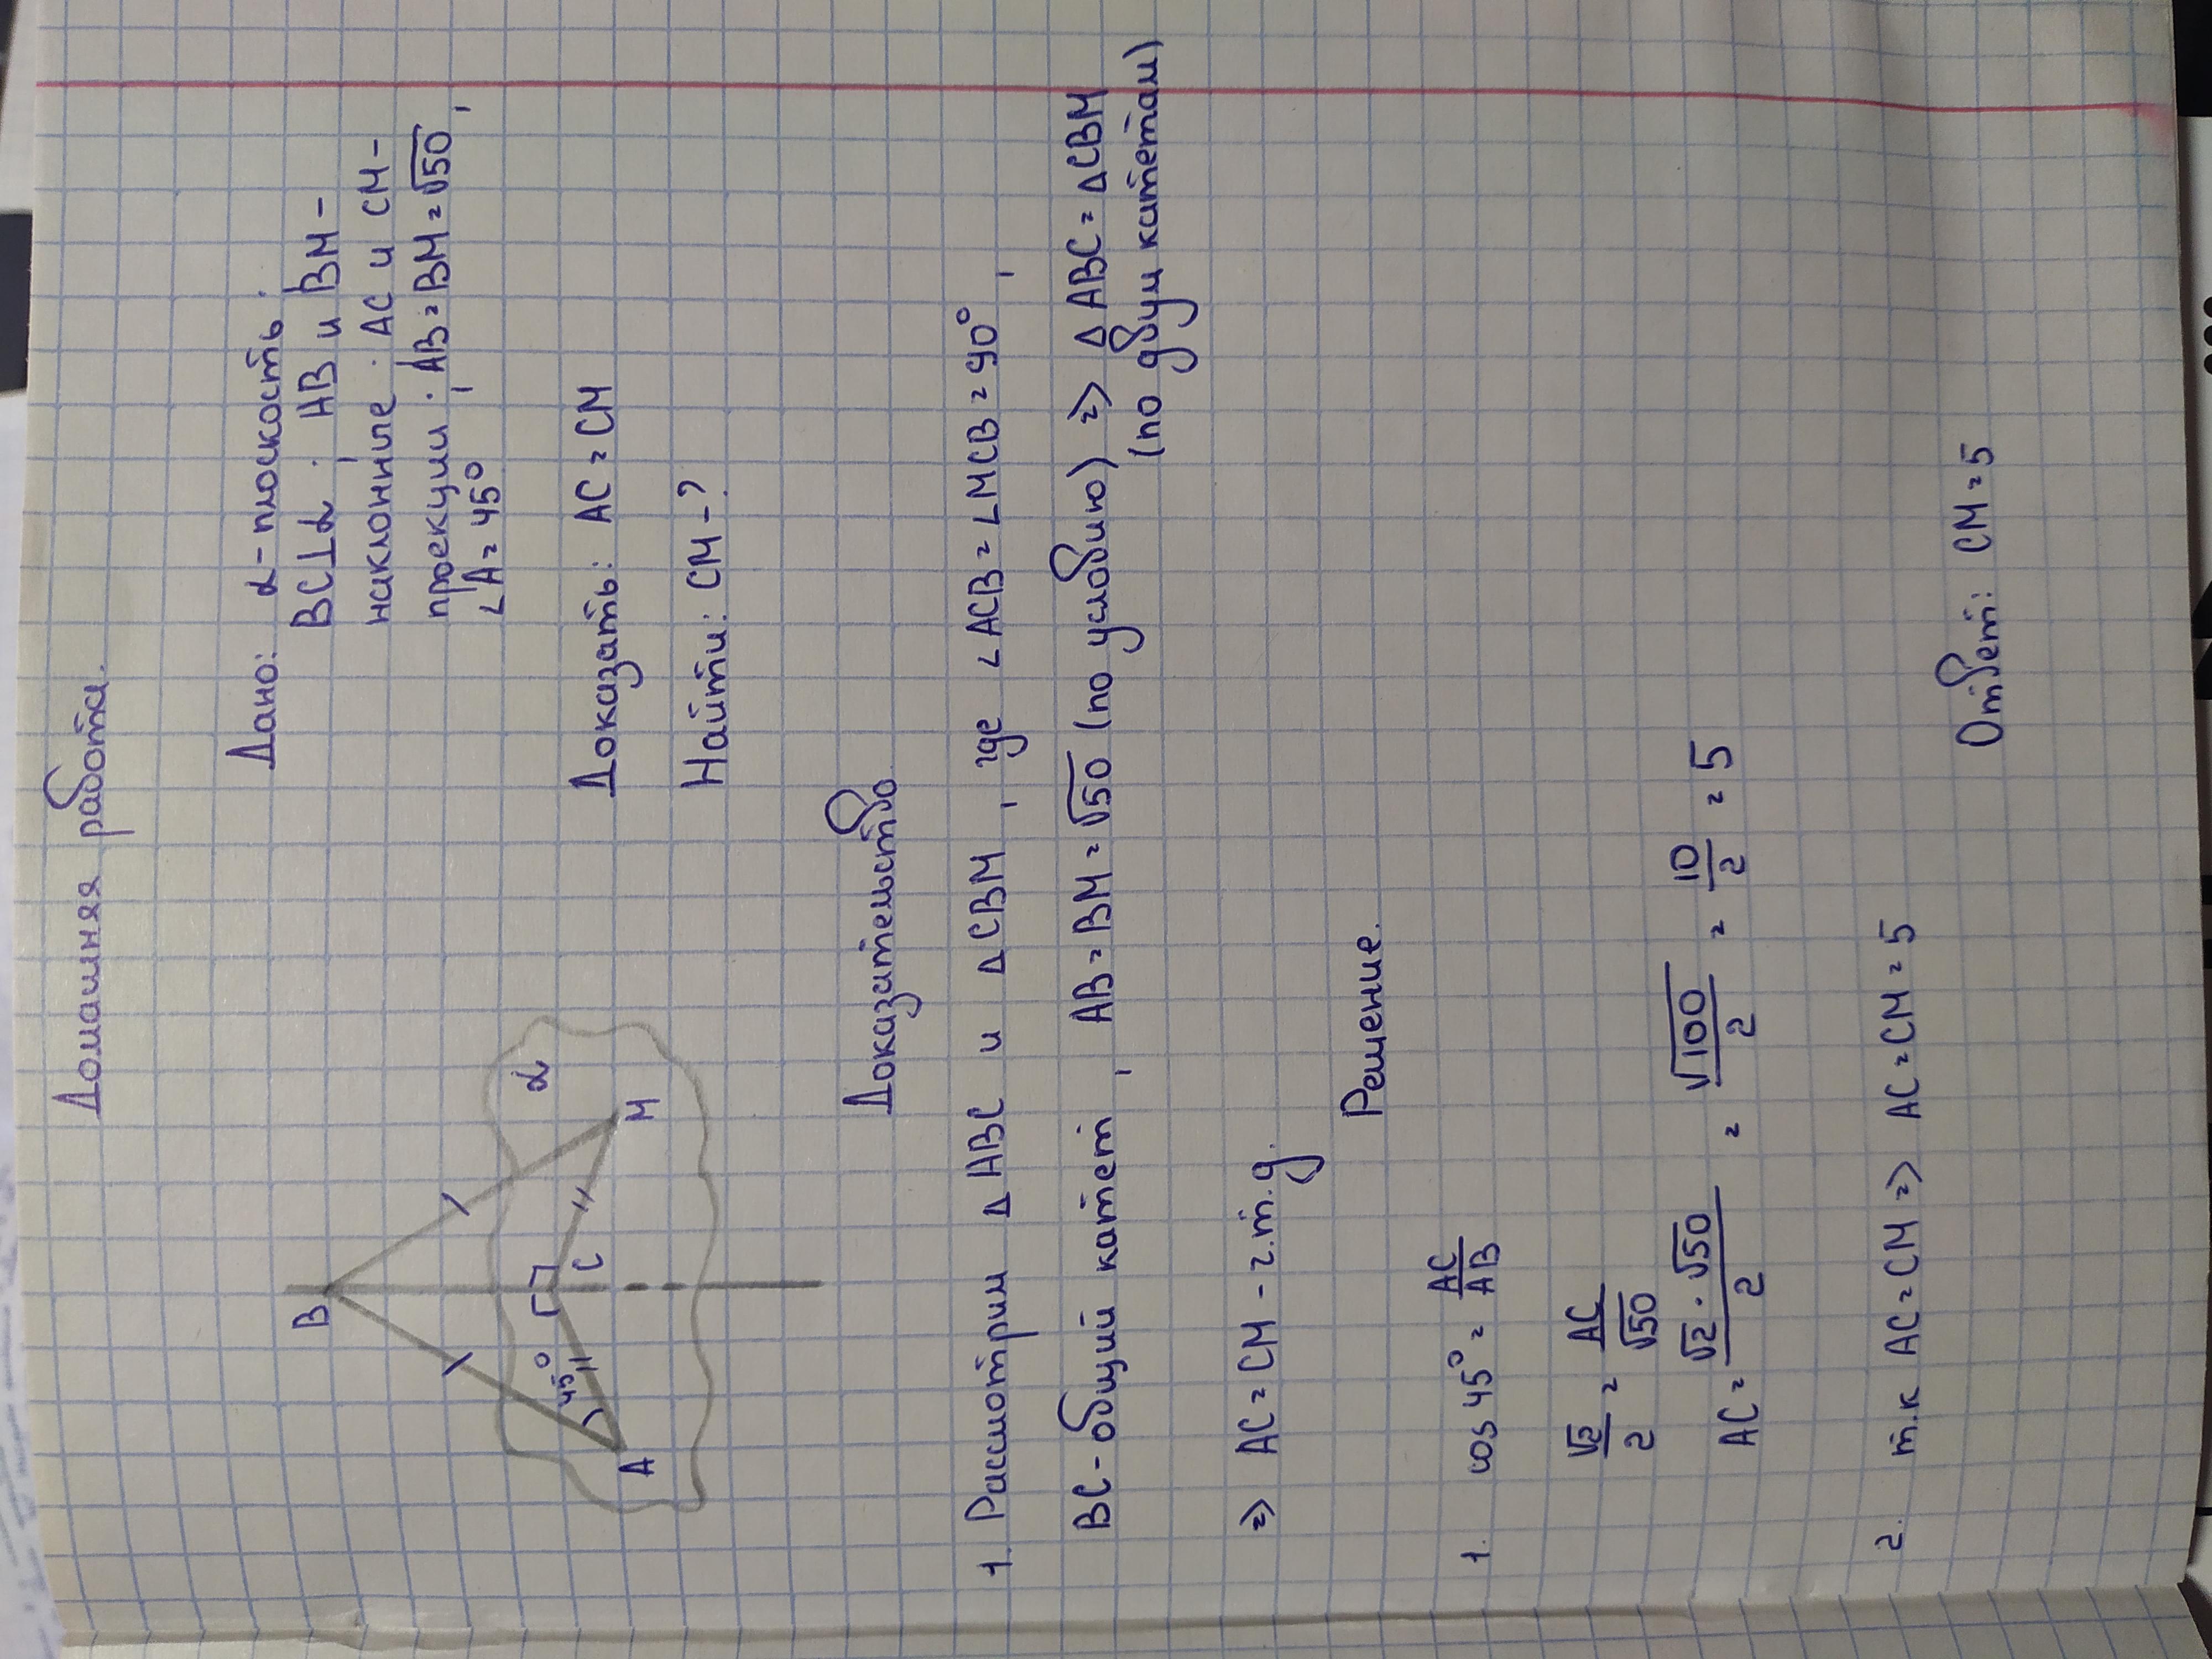 Домашняя работа.
Дано: α-плоскость.
BC⊥α. AB и BM -
наклонные. AC и CM -
проекции. AB = BM = √50,
∠A = 45°
Доказать: AC = CM
Найти: CM - ?
B
45°
C
A
M
α
Доказательство.
1. Рассмотрим △ABC и △CBM, где ∠ACB = ∠MCB = 90°,
BC - общий катет, AB = BM = √50 (по условию) => △ABC = △CBM
(по двум катетам)
=> AC = CM - ч.т.д
Решение.
1. cos 45° = AC/AB
√2/2 = AC/√50
AC = √2 · √50/2 = √100/2 = 10/2 = 5
2. т.к AC = CM => AC = CM = 5
Ответ: CM = 5